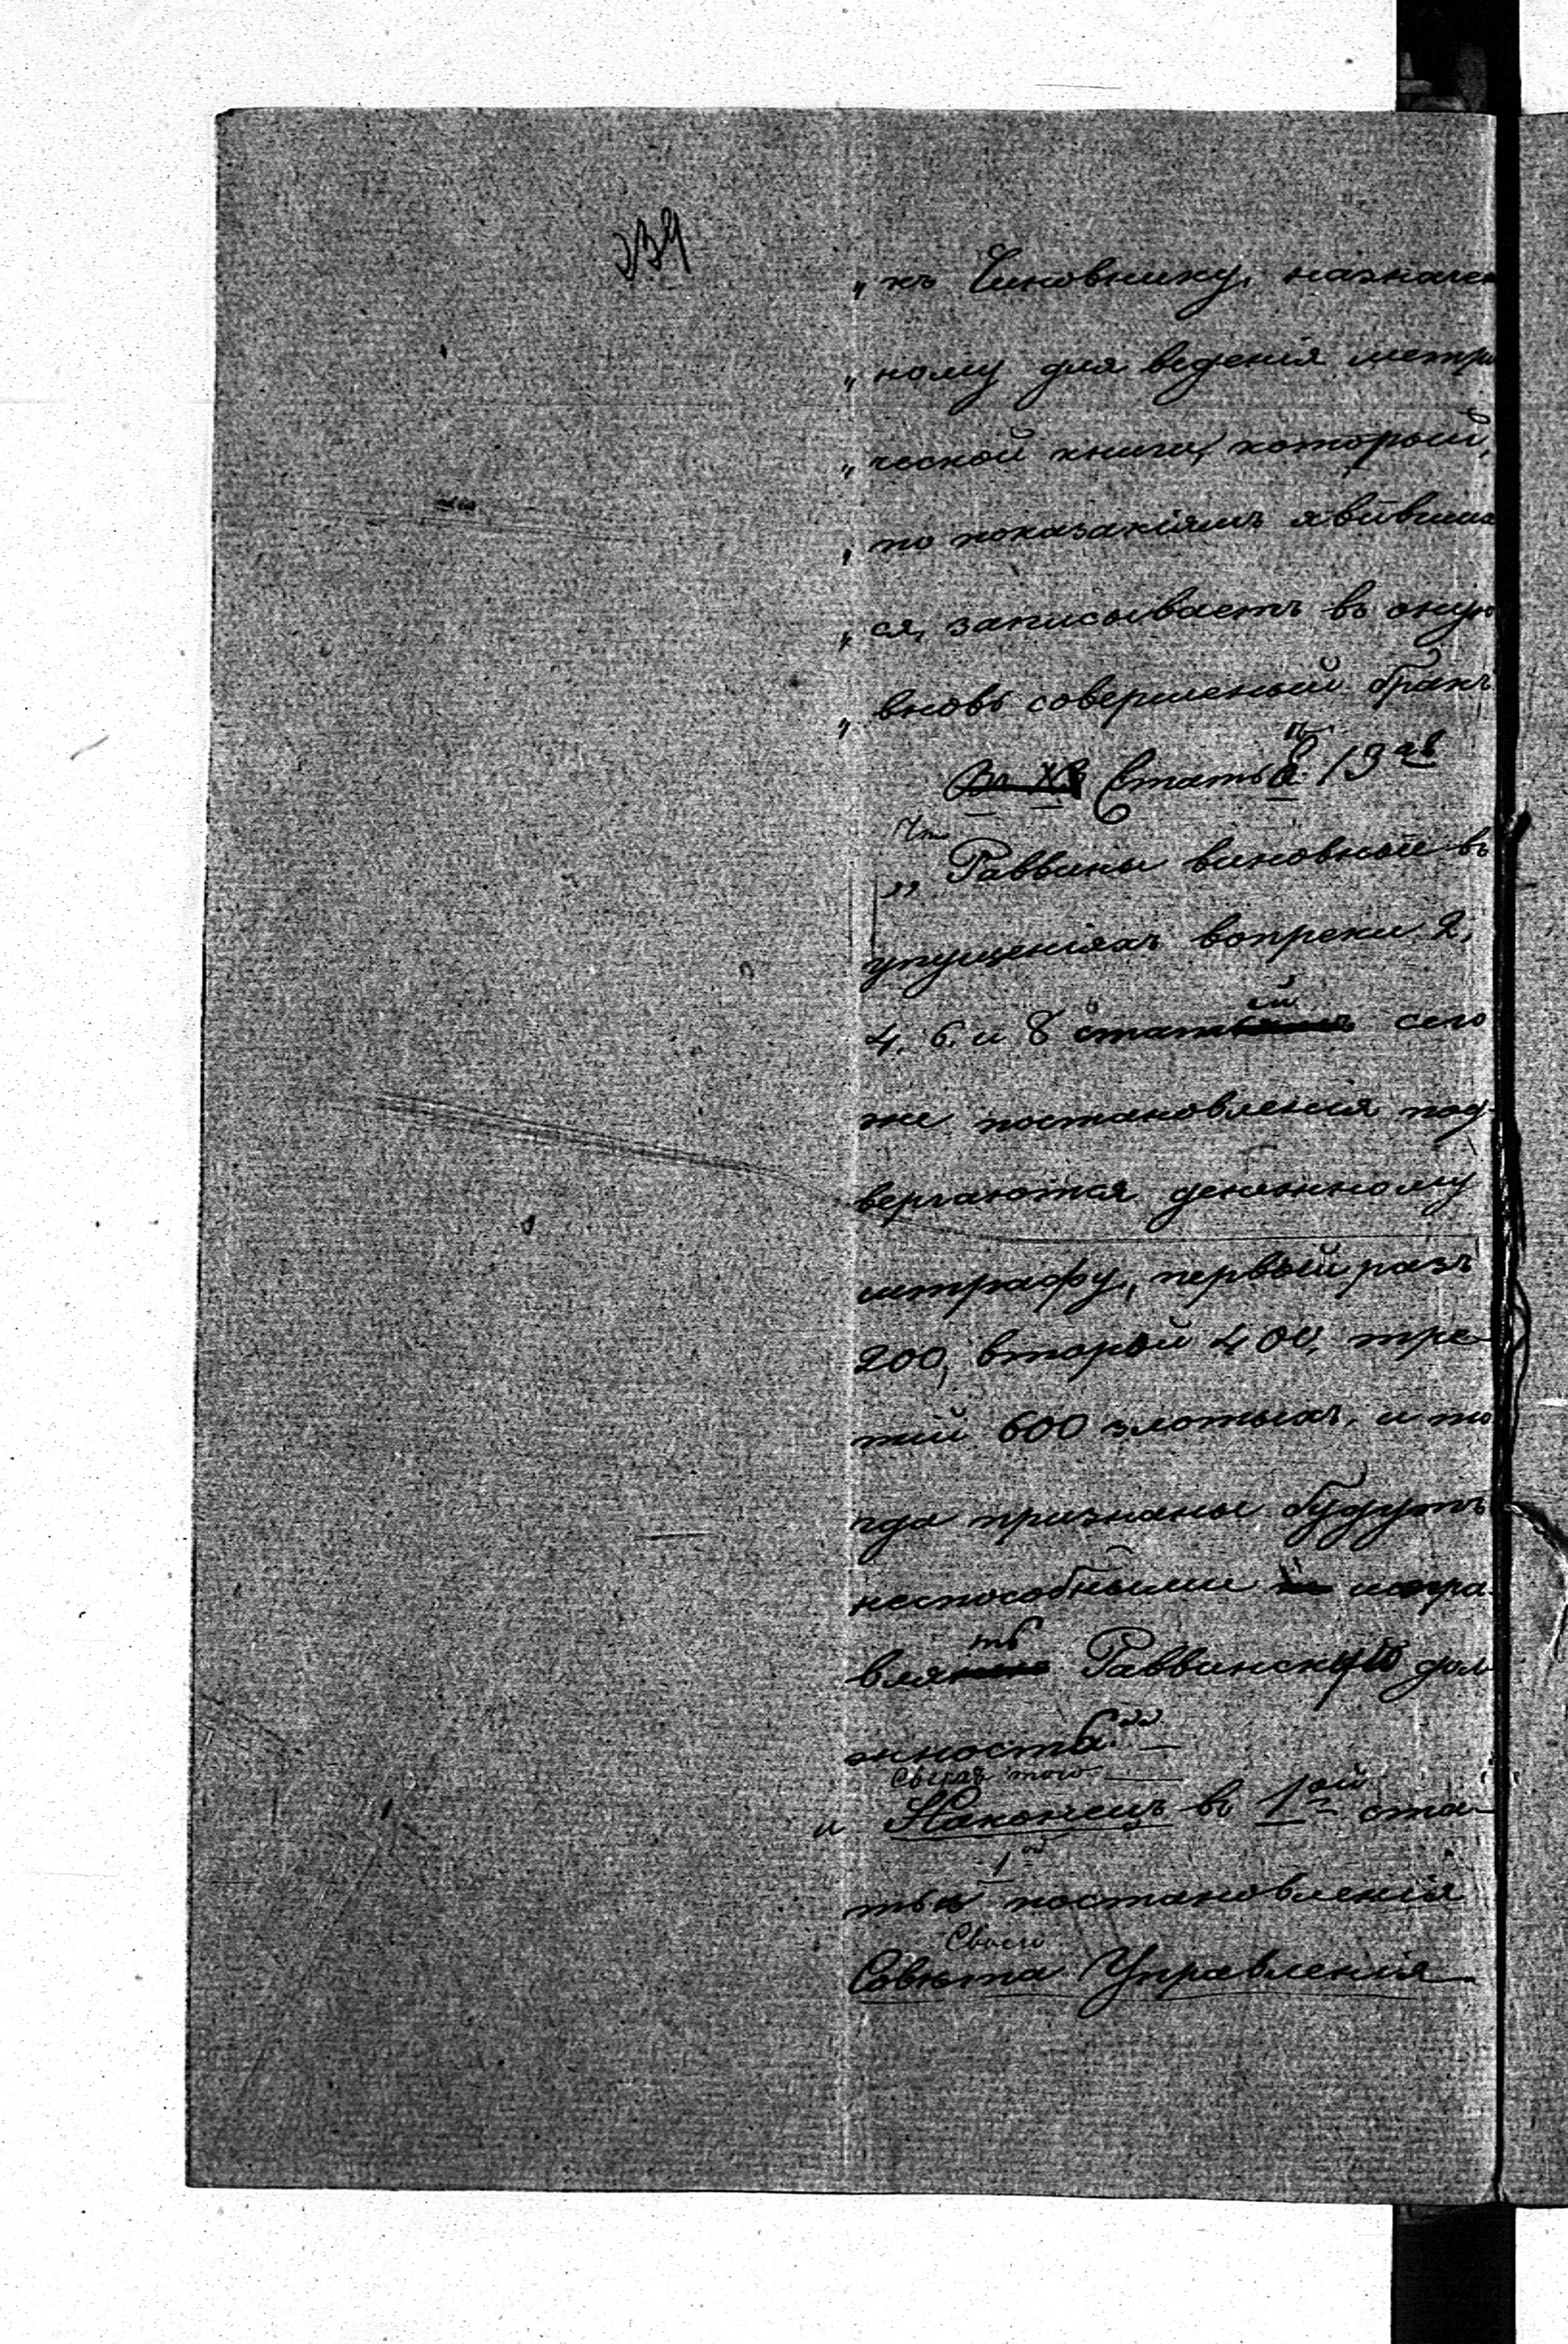 239
„ къ Чиновнику, назначен
„ ному для веденія метри
„ ческой книги, который,
„ по показаніямъ явивших
„ ся, записываетъ въ оную
„ вновь совершеный бракъ
Статья 13ая
Что
„ Раввины виновные въ
упущеніяхъ вопреки 2,
4, 6. и 8 статей сего
же постановленія под
вергаются денежному
штрафу, первый разъ
200, второй 400, тре
тій 600 злотыхъ, и то
гда признаны будутъ
неспособными исправ
влять Раввинскую дол
жность"
Сверхъ того
и Наконецъ въ 1ой ста
1го
тьѣ постановленія
Своего
Совѣта Управленія